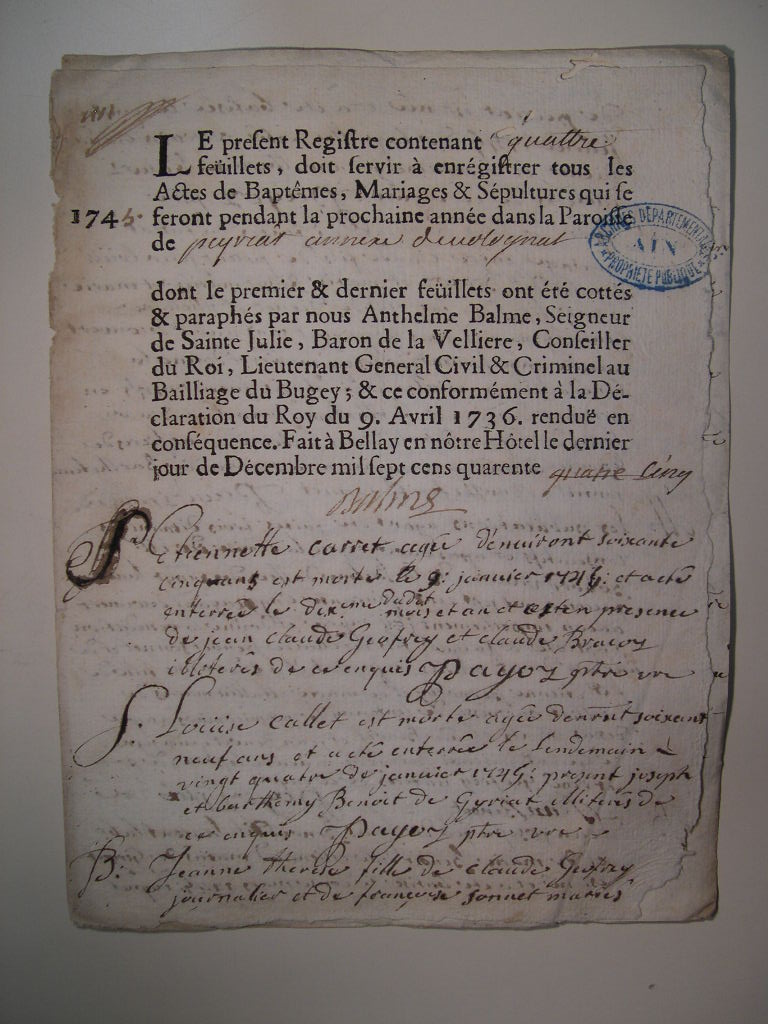 LE present Registre contenant quattre
feüillets, doit servir à enrégistrer tous les
Actes de Baptêmes, Mariages & Sépultures qui se
1745. feront pendant la prochaine année dans la Paroisse
de peyriat annexe de volognat
ARCHIVES DÉPARTEMENTALES
AIN
PROPRIÉTÉ PUBLIQUE
dont le premier & dernier feüillets ont été cottés
& paraphés par nous Anthelme Balme, Seigneur
de Sainte Julie, Baron de la Velliere, Conseiller
du Roi, Lieutenant General Civil & Criminel au
Bailliage du Bugey; & ce conformément à la Dé-
claration du Roy du 9. Avril 1736. renduë en
conséquence. Fait à Bellay en nôtre Hôtel le dernier
jour de Décembre mil sept cens quarente quatre cinq
Balme
S. Etiennette carret agée d'enuiront soixante
cinq ans est morte le 9: januier 1745: et a eté
enterrée le dixieme dudit mois et an et en presence
de jean claude Geofrey et claude
illiterés de ce enquis Payoz ptre vre
S. Louise callet est morte agée denront soixant
neuf ans et a eté enterrée le lendemain
vingt quatre de januier 1745: present joseph
et barthemy Benoit de Gyriat illiterés de
ce enquis Payoz ptre vre
B: Jeanne therese fille de claude Geofrey
journalier et de françoise sonnet mariés